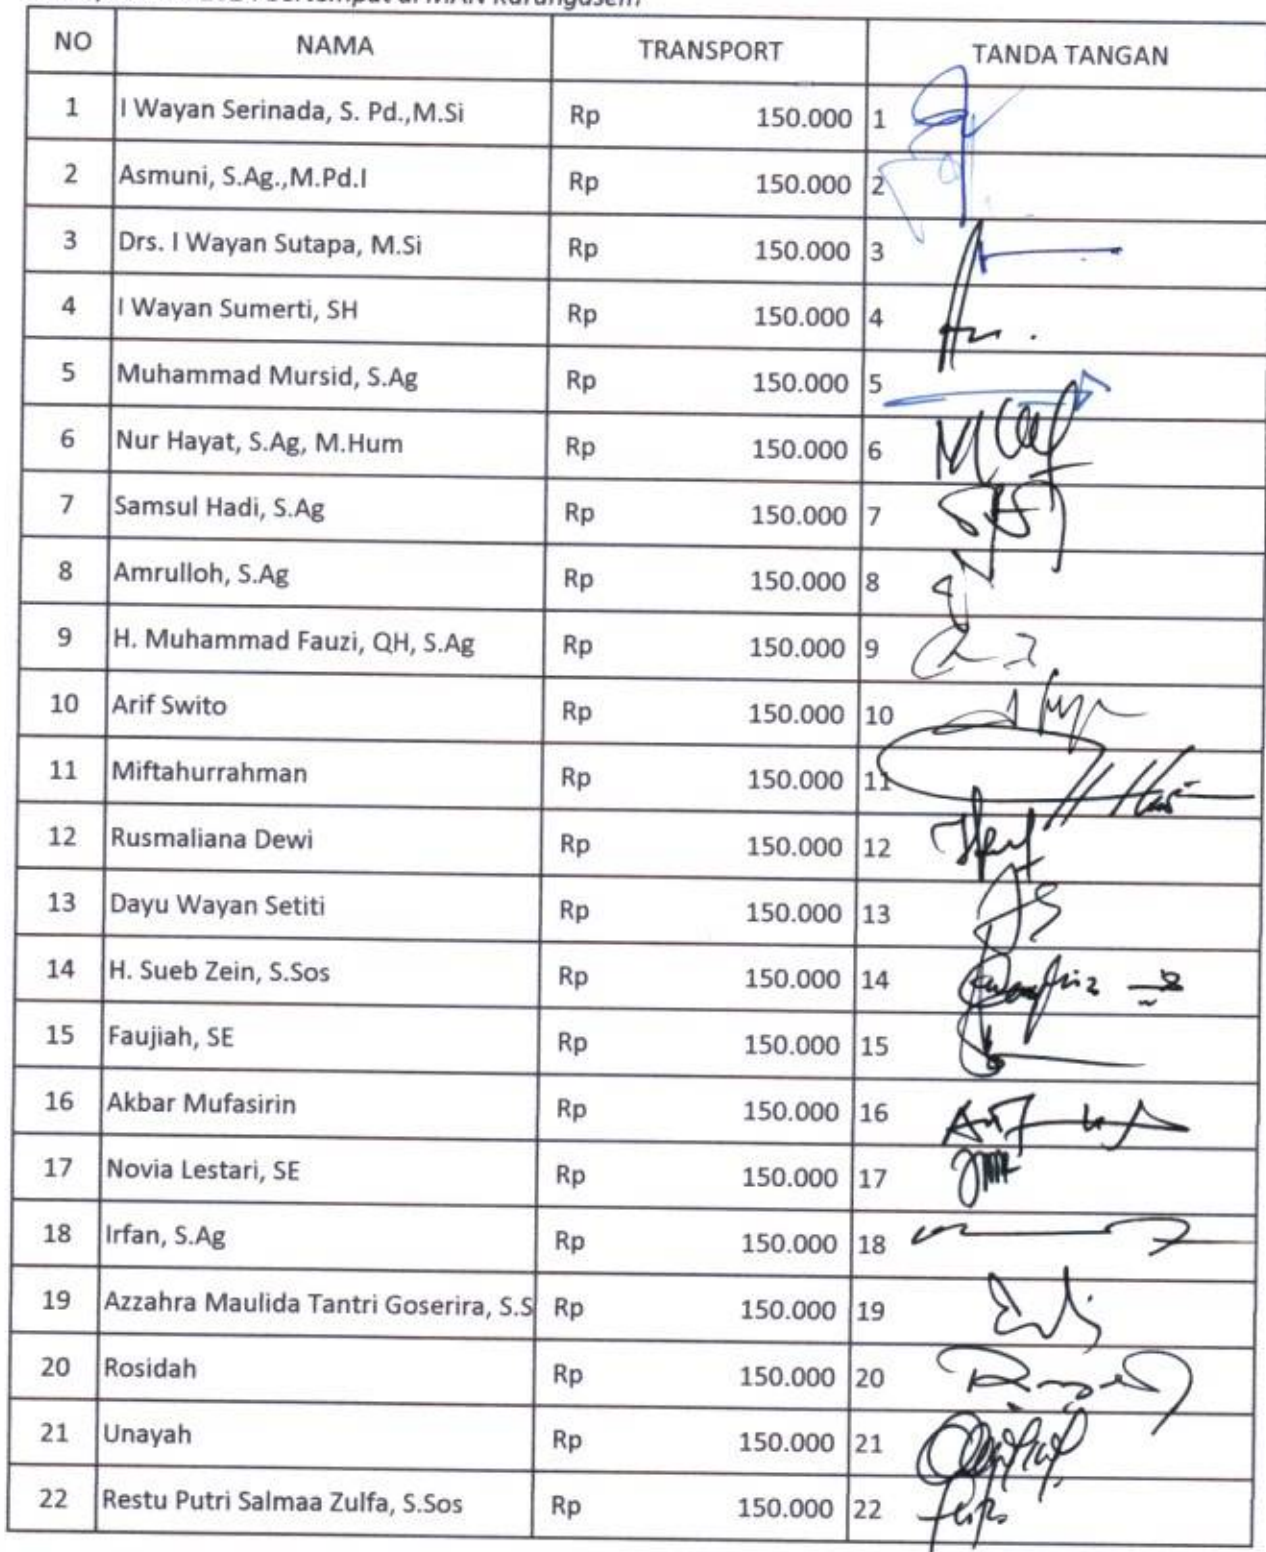 bertempat di MAN Karangasem
NO NAMA TRANSPORT TANDA TANGAN
1 I Wayan Serinada, S. Pd.,M.Si Rp 150.000 1
2 Asmuni, S.Ag.,M.Pd.I Rp 150.000 2
3 Drs. I Wayan Sutapa, M.Si Rp 150.000 3
4 I Wayan Sumerti, SH Rp 150.000 4
5 Muhammad Mursid, S.Ag Rp 150.000 5
6 Nur Hayat, S.Ag, M.Hum Rp 150.000 6
7 Samsul Hadi, S.Ag Rp 150.000 7
8 Amrulloh, S.Ag Rp 150.000 8
9 H. Muhammad Fauzi, QH, S.Ag Rp 150.000 9
10 Arif Swito Rp 150.000 10
11 Miftahurrahman Rp 150.000 11
12 Rusmaliana Dewi Rp 150.000 12
13 Dayu Wayan Setiti Rp 150.000 13
14 H. Sueb Zein, S.Sos Rp 150.000 14
15 Faujiah, SE Rp 150.000 15
16 Akbar Mufasirin Rp 150.000 16
17 Novia Lestari, SE Rp 150.000 17
18 Irfan, S.Ag Rp 150.000 18
19 Azzahra Maulida Tantri Goserira, S.S Rp 150.000 19
20 Rosidah Rp 150.000 20
21 Unayah Rp 150.000 21
22 Restu Putri Salmaa Zulfa, S.Sos Rp 150.000 22